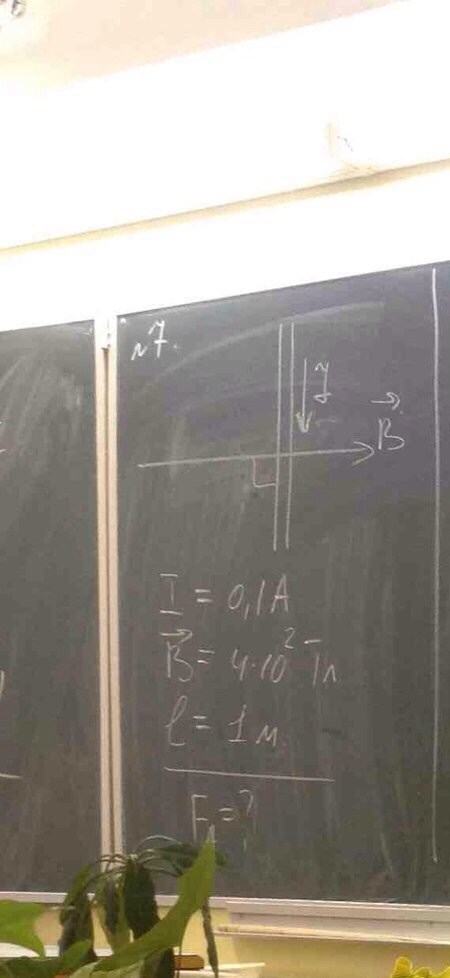 №7.
I
B
I = 0,1А
B = 4·10² Тл
l = 1 м
Fл = ?